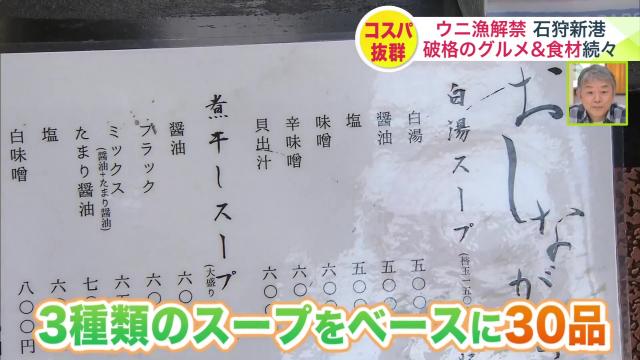 コスパ
抜群
ウニ漁解禁 石狩新港
破格のグルメ&食材続々
おしなが
白湯スープ
白湯 五〇
醤油 五〇〇
塩 五〇〇
味噌 六〇
辛味噌 六〇
貝出汁 六〇〇
煮干しスープ(大盛り
醤油 六〇
ブラック 六〇
ミックス 六
(醤油+たまり醤油)
たまり醤油 七〇
塩 六〇
白味噌 八〇〇円
3種類のスープをベースに30品